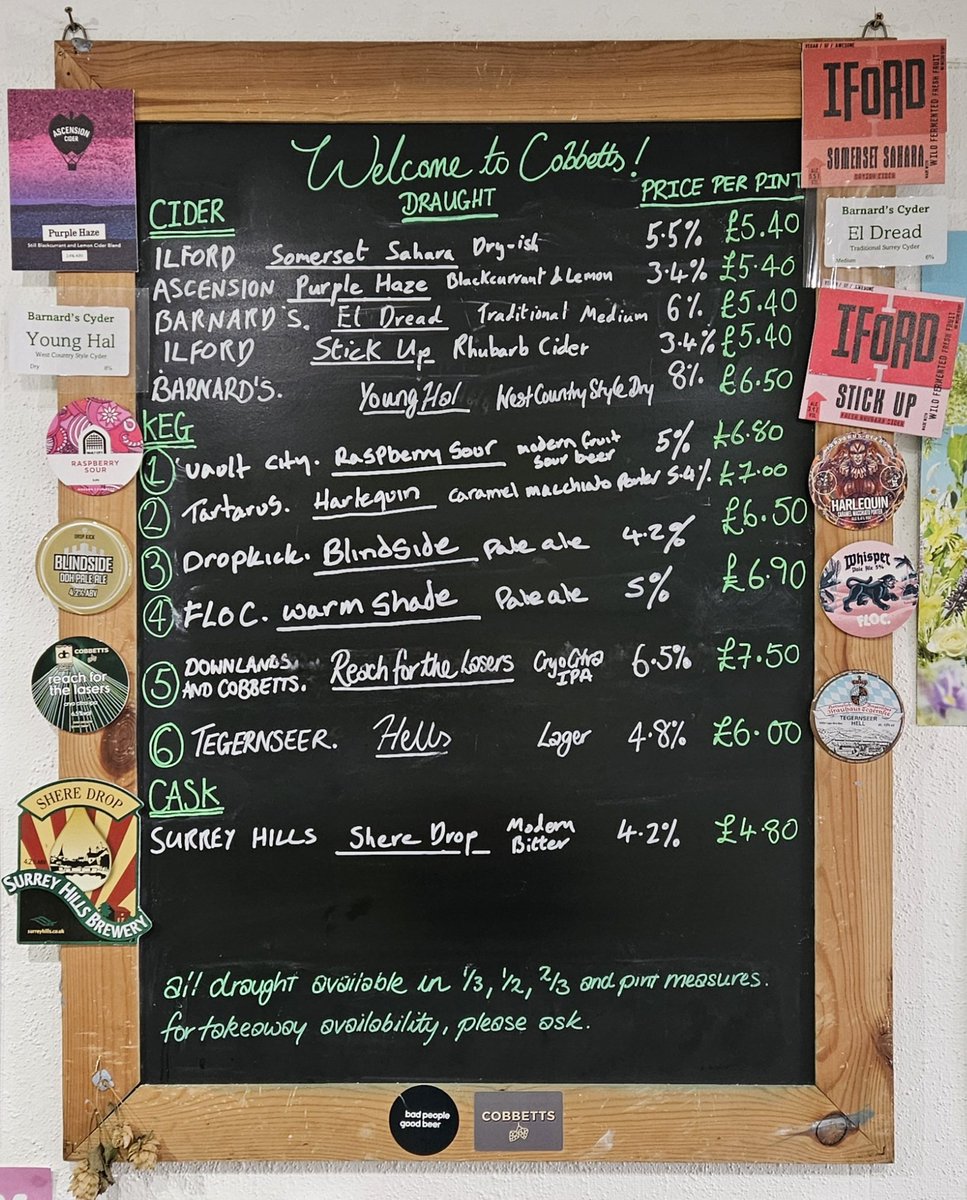 Welcome to Cobbetts!
DRAUGHT
PRICE PER PINT
CIDER
ILFORD Somerset Sahara Dry-ish 5.5% £5.40
ASCENSION Purple Haze Blackcurrant & Lemon 3.4% £5.40
BARNARD'S. El Dread Traditional Medium 6% £5.40
ILFORD Stick Up Rhubarb Cider 3.4% £5.40
BARNARD'S. Young Hal West Country Style Dry 8% £6.50
KEG
1 Vault City. Raspberry Sour modern fruit sour beer 5% £6.80
2 Tartarus. Harlequin caramel macchiato Porter 5.4% £7.00
3 Dropkick. Blindside Pale ale 4.2% £6.50
4 FLOC. warm shade Pale ale 5% £6.90
5 DOWNLANDS AND COBBETTS. Reach for the Losers Cryo Citra IPA 6.5% £7.50
6 TEGERNSEER. Hells Lager 4.8% £6.00
CASK
SURREY HILLS Shere Drop Modern Bitter 4.2% £4.80
all draught available in 1/3, 1/2, 2/3 and pint measures.
for takeaway availability, please ask.
ASCENSION
CIDER
Purple Haze
Still Blackcurrant and Lemon Cider Blend
Barnard's Cyder
Young Hal
West Country Style Cyder
Dry 8%
RASPBERRY
SOUR
DROP KICK
BLINDSIDE
DDH PALE ALE
4.2% ABV
COBBETTS
reach for
the lasers
SHERE DROP
4.2% ABV
SURREY HILLS BREWERY
surreyhills.co.uk
VEGAN / GF / AWESOME
IFORD
SOMERSET SAHARA
DRYISH CIDER
WILD FERMENTED FRESH FRUIT
Barnard's Cyder
El Dread
Traditional Surrey Cyder
Medium 6%
IFORD
STICK UP
FRESH RHUBARB CIDER
WILD FERMENTED FRESH FRUIT
HARLEQUIN
CARAMEL MACCHIATO PORTER
Whisper
Pale Ale 5%
FLOC.
TEGERNSEER
HELL
bad people
good beer
COBBETTS